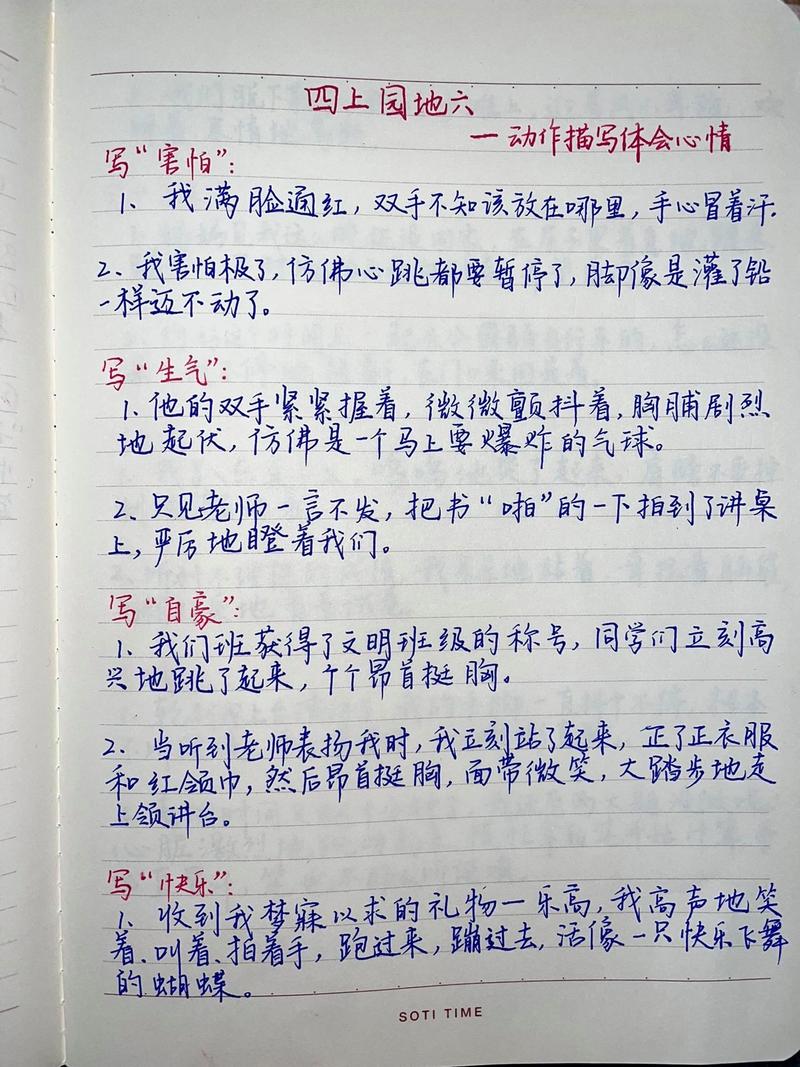 四上园地六
一动作描写体会心情
写“害怕”:
1、我满脸通红，双手不知该放在哪里，手心冒着汗.
2、我害怕极了，仿佛心跳都要暂停了，脚像是灌了铅
一样迈不动了。
写“生气”:
1、他的双手紧紧握着，微微颤抖着，胸脯剧烈
地起伏，仿佛是一个马上要爆炸的气球。
2、只见老师一言不发，把书“啪”的一下拍到了讲桌
上，严厉地瞪着我们。
写“自豪”:
1、我们班获得了文明班级的称号，同学们立刻高
兴地跳了起来，个个昂首挺胸。
2、当听到老师表扬我时，我立刻站了起来，正了正衣服
和红领巾，然后昂首挺胸，面带微笑，大踏步地走
上领讲台。
写“快乐”:
1、收到我梦寐以求的礼物一乐高，我高声地笑
着、叫着、拍着手，跑过来，蹦过去，活像一只快乐飞舞
的蝴蝶。
SOTI TIME